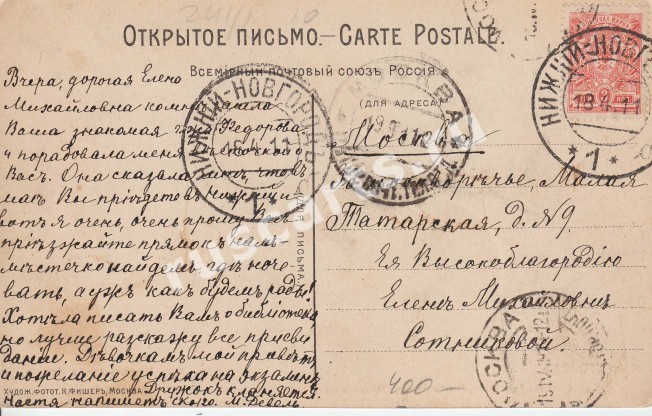 ОТКРЫТОЕ ПИСЬМО.–CARTE POSTALE.
ВСЕМІРНЫЙ ПОЧТОВЫЙ СОЮЗЪ РОССІЯ.
(ДЛЯ АДРЕСА)
Вчера, дорогая Елена
Михайловна
Ваша знакомая г-жа Федорова
и порадовала меня
Васъ. Она сказала мнѣ, что въ
маѣ Вы пріѣдете въ Нижній
вотъ я очень, очень прошу Васъ
пріѣзжайте прямо къ намъ
мѣстечко найдемъ гдѣ ноче-
вать, а ужъ какъ будемъ рады!
Хотѣла писать Вамъ о библіотекѣ
но лучше разскажу все при сви
даніи. Дѣвочкамъ мой привѣтъ
и пожеланіе успѣха на экзамен
Дружокъ кланяется
Настя напишетъ скоро. М.
ХУДОЖ. ФОТОТ. К. ФИШЕРЪ, МОСКВА
(ДЛЯ ПИСЬМА)
Москва
Замоскворѣчье, Малая
Татарская, д. № 9
Ея Высокоблагородію
Еленѣ Михайловнѣ
Сотниковой.
НИЖНІЙ-НОВГОРОДЪ
18.4.11
НИЖНІЙ-НОВГОРОДЪ
18.4.11
*1*
МОСКВА
400-